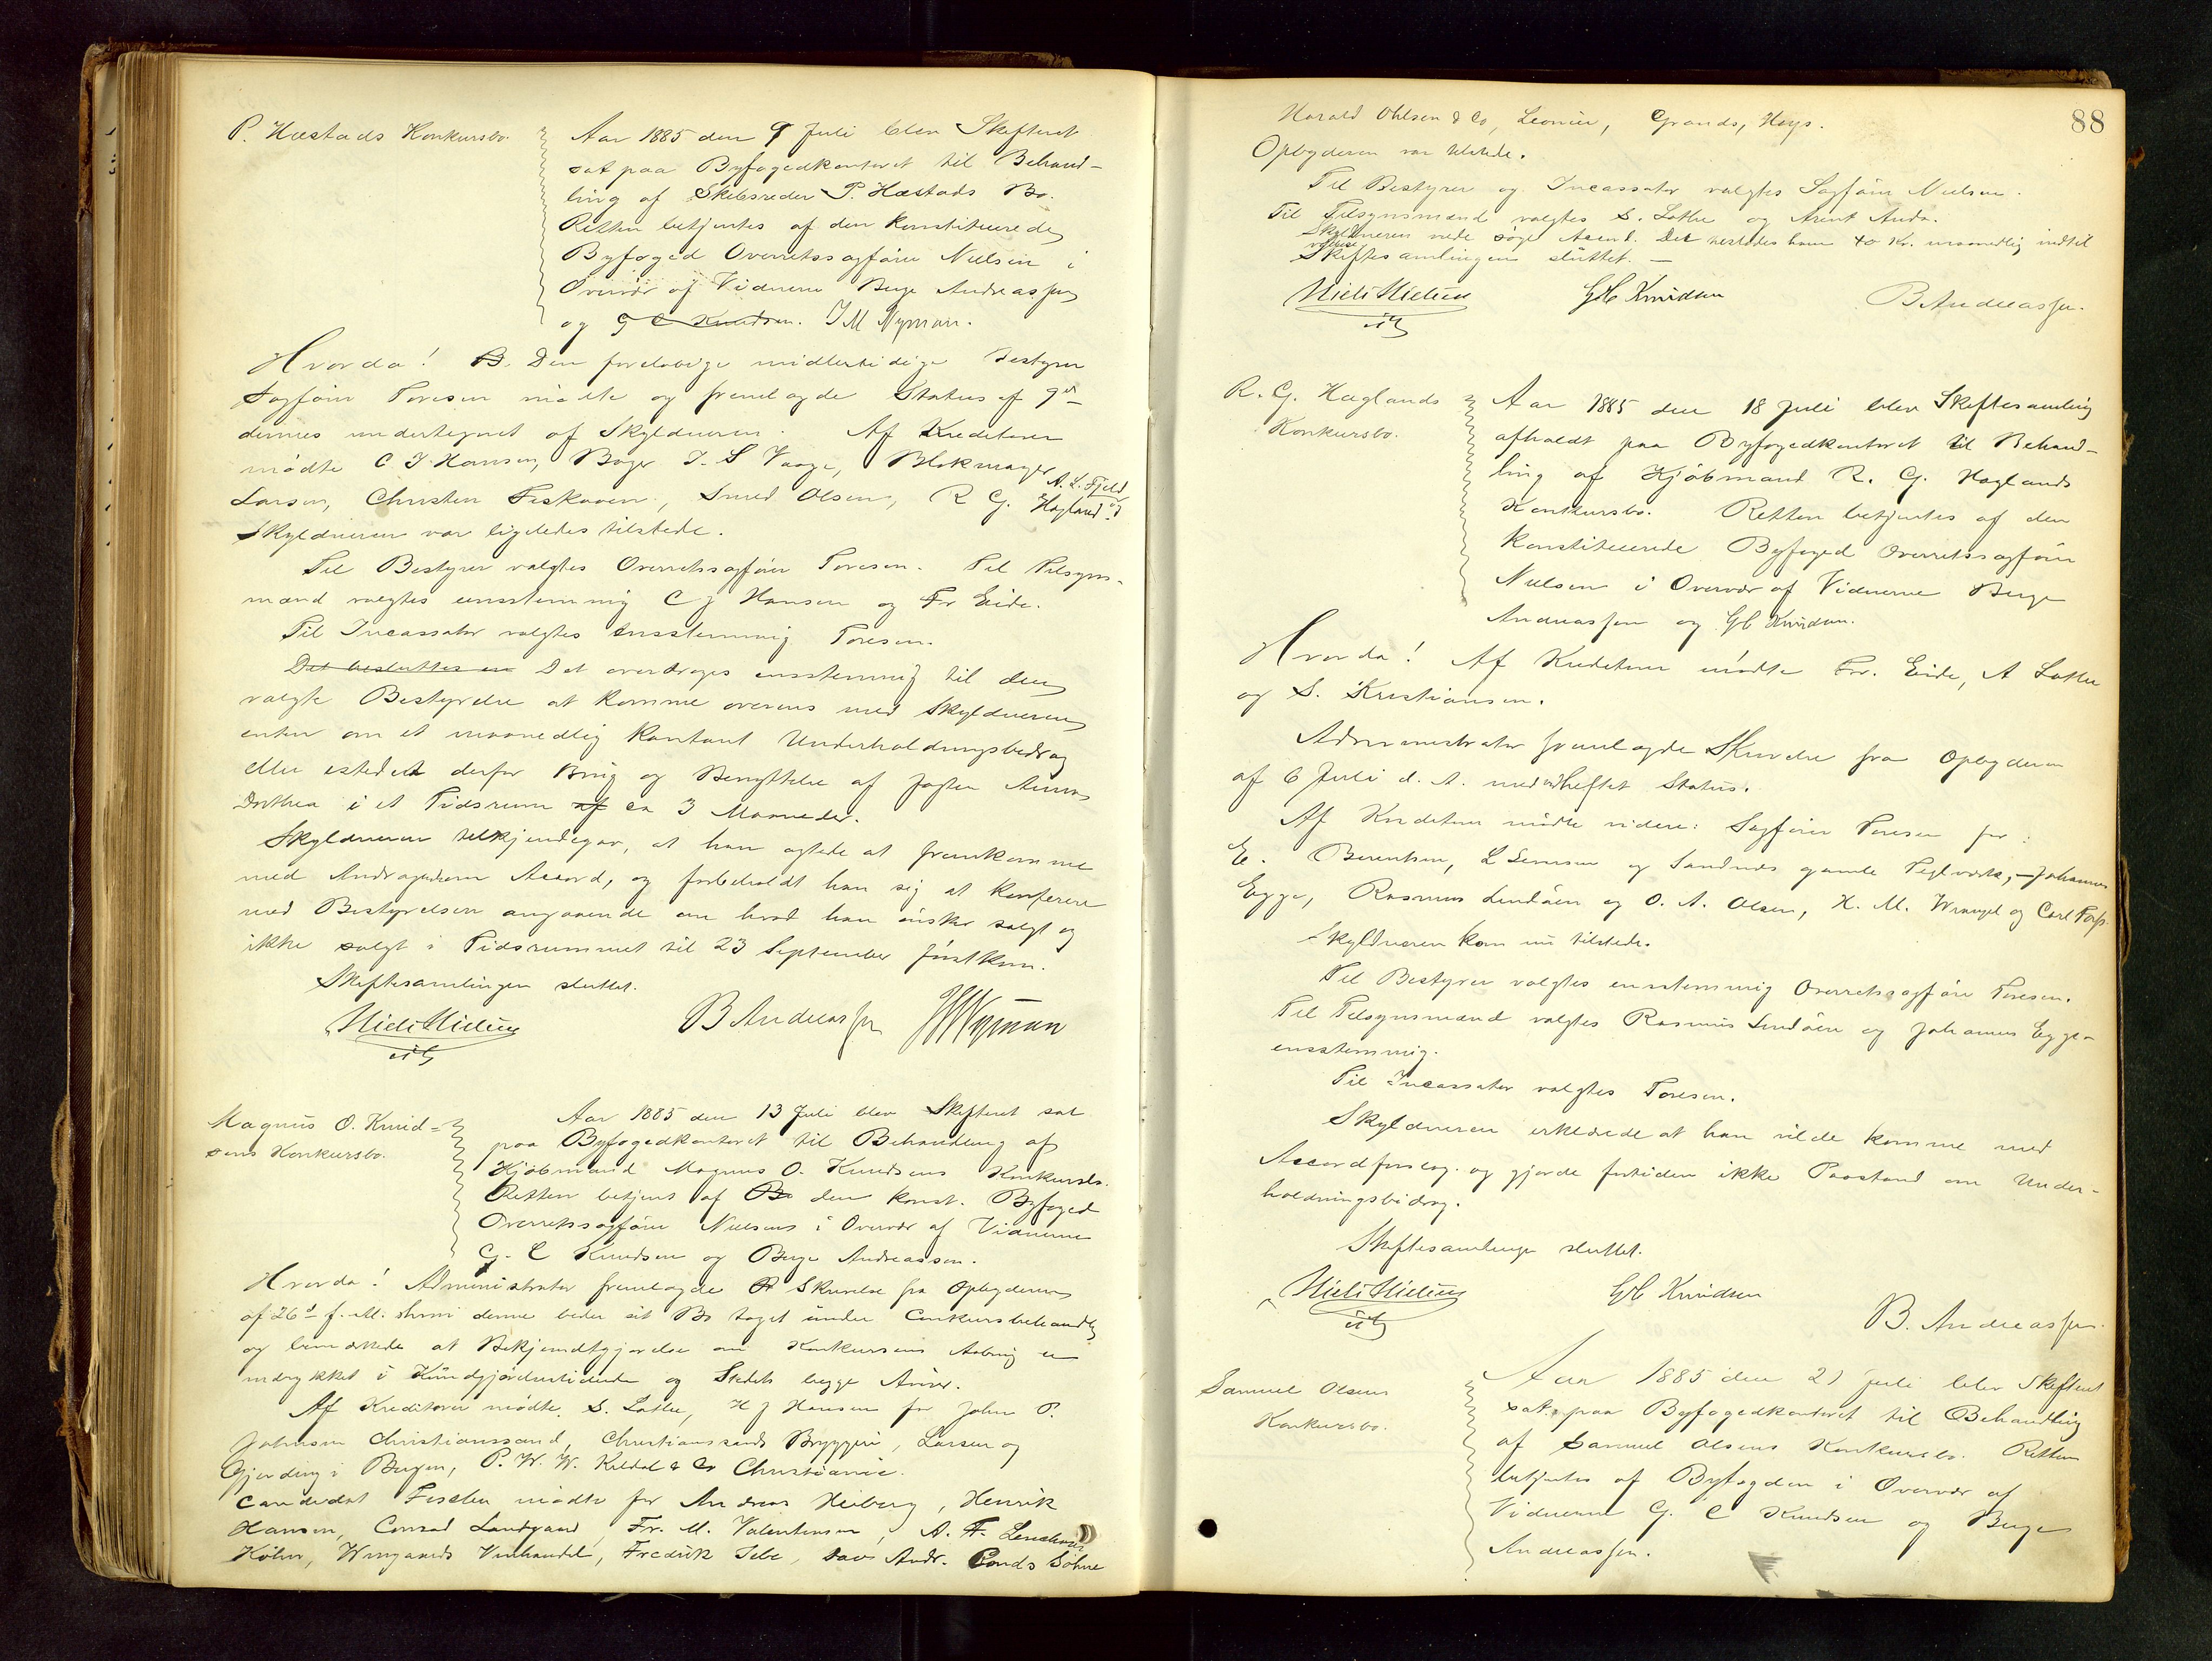 P. Hæstads Konkursbo.
Aar 1885 den 9 Juli blev Skifteret
sat paa Byfogedkontoret til Behand-
ling af Skibsreder P. Hæstads Bo.
Retten betjentes af den konstituerede
Byfoged Overretssagfører Nielsen i
Overvær af Vidnerne Berge Andreassen
og G C Knudsen. I M Nyman.
Hvorda! B. Den foreløbige midlertidige Bestyrer
Sagfører Toresen mødte og fremlagde Status af 9de
dennes undertegnet af Skyldneren. Af Kreditorer
mødte C. J. Hansen, Bager I. S Vaage, Blokmager A. L. Fjeld
Larsen, Christen , Smed Olsen, R G. Hagland og
Skyldneren var ligeledes tilstede.
Til Bestyrer valgtes Overretssagfører Toresen. Til Tilsyns-
mænd valgtes eensstemmig C J Hansen og Fr Eide.
Til Incassator valgtes ensstemmig Toresen.
Det besluttes en Det overdroges ensstemmig til den
valgte Bestyrelse at komme overens med Skyldneren
enten om et maanedlig kontant Underholdningsbidrag
eller istedet derfor Brug og Benyttelse af Jagten Anna
Dorthea i et Tidsrum af ca 3 Maaneder.
Skyldneren tilkjendegav, at han agtede at fremkomme
med Andragende om Accord, og forbeholdt han sig at konferere
med Bestyrelsen angaaende om hvad han ønsker solgt og
ikke solgt i Tidsrummet til 23 September førstkom.
Skiftesamlingen sluttet.
Niels Nielsen B Andreassen IMNyman
cst
Magnus O. Knud-
sens Konkursbo.
Aar 1885 den 13 Juli blev Skifteret sat
paa Byfogedkontoret til Behandling af
Kjøbmand Magnus O. Knudsens Konkursbo.
Retten betjent af Bo den konst. Byfoged
Overretssagfører Nielsens i Overvær af Vidnerne
G. C Knudsen og Berge Andreassen.
Hvorda! Administrator fremlagde Skrivelse fra Opbyderen
af 26de f. M. hvori denne beder sit Bo taget under Concursbehandlg
og bemærkede at Bekjendtgjørelse om Konkursens Aabning er
indrykket i Kundgjørelsestidende og Stedets begge Aviser.
Af Kreditorer mødte S. Lothe, H J Hansen for John P.
Johnsen Christianssand, Christianssands Bryggeri, Larsen og
Gjerding i Bergen, P. W. W. Kildal & Co Christiania.
Candidat Fischer mødte for Andreas Heiberg, Henrik
Hansen, Conrad Landgaard, Fr. M. Valentinsen, A. F.
Køhn, Wingaards Vinhandel, Fredrik , Andr. Sønne
88
Harald Ohlsen & Co, , Grands, Høys.
Opbyderen var tilstede.
Til Bestyrer og Incassator valgtes Sagfører Nielsen.
Til Tilsynsmænd valgtes S. Lothe og Arent Anda.
Skyldneren vilde søge Accord. Det tilstedes ham 40 Kr. maanedlig indtil
videre
Skiftesamlingen sluttet. —
Niels Nielsen GCKnudsen BAndreassen.
cst
R. G. Haglands
Konkursbo.
Aar 1885 den 18 Juli blev Skiftesamling
afholdt paa Byfogedkontoret til Behand-
ling af Kjøbmand R. G. Haglands
Konkursbo. Retten betjentes af den
konstituerede Byfoged Overretssagfører
Nielsen i Overvær af Vidnerne Berge
Andreassen og GC Knudsen.
Hvorda! Af Kreditorer mødte Fr. Eide, A Lothe
og S. Kristiansen.
Administrator fremlagde Skrivelse fra Opbyderen
af 6 Juli d. A. med vedheftet Status.
Af Kreditorer mødte videre: Sagfører Toresen for:
E. Berentsen, L og Sandnæs gamle Teglværk, — Johannes
Egge, Rasmus Lindøen og O. A. Olsen, H. M. Wrangel og Carl
Skyldneren kom nu tilstede.
Til Bestyrer valgtes ensstemmig Overretssagfører Toresen.
Til Tilsynsmænd valgtes Rasmus Lindøen og Johannes Egge-
ensstemmig.
Til Incassator valgtes Toresen.
Skyldneren erklærede at han vilde komme med
Accordforslag og gjorde fortiden ikke Paastand om Under-
holdningsbidrag.
Skiftesamlingen sluttet.
Niels Nielsen GC Knudsen
cst B. Andreassen.
Samuel Olsens
Konkursbo.
Aar 1885 den 21 Juli blev Skifteret
sat paa Byfogedkontoret til Behandling
af Samuel Olsens Konkursbo. Retten
betjentes af Byfogden i Overvær af
Vidnerne G. C Knudsen og Berge
Andreassen.